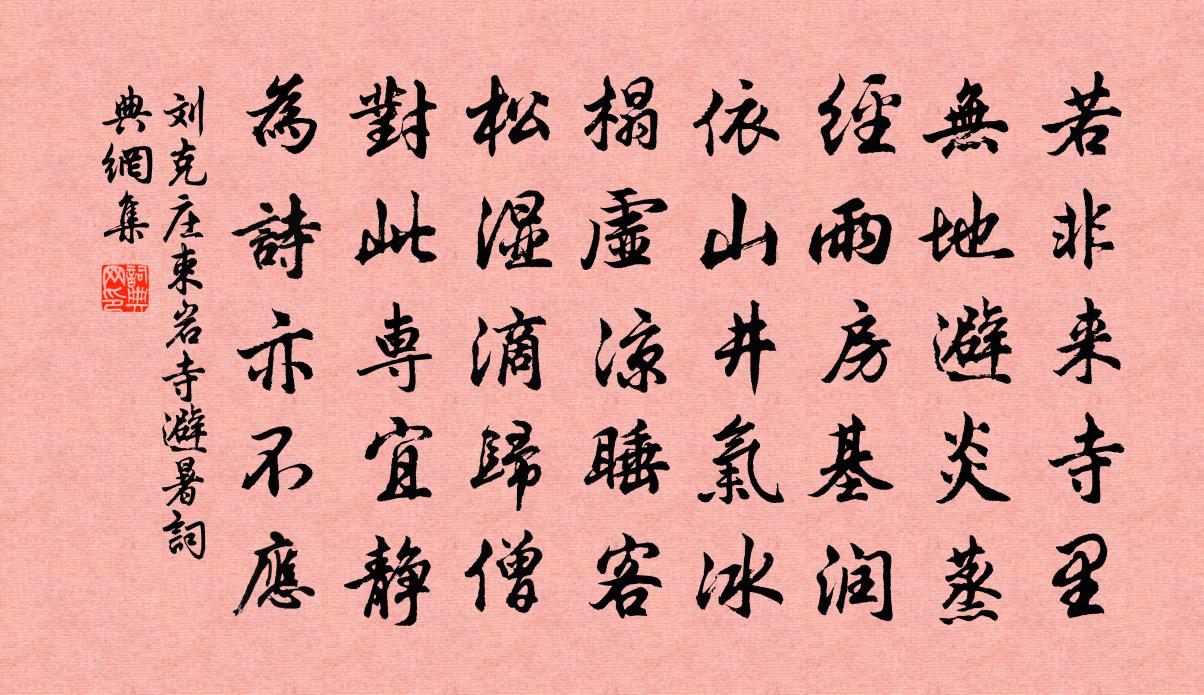 若非来寺里
無地避炎蒸
經雨房基润
依山井氣冰
榻虛凉睡客
松濕滴歸僧
對此専宜静
為詩亦不應
刘克庄東岩寺避暑詞
典網集
詞典网印